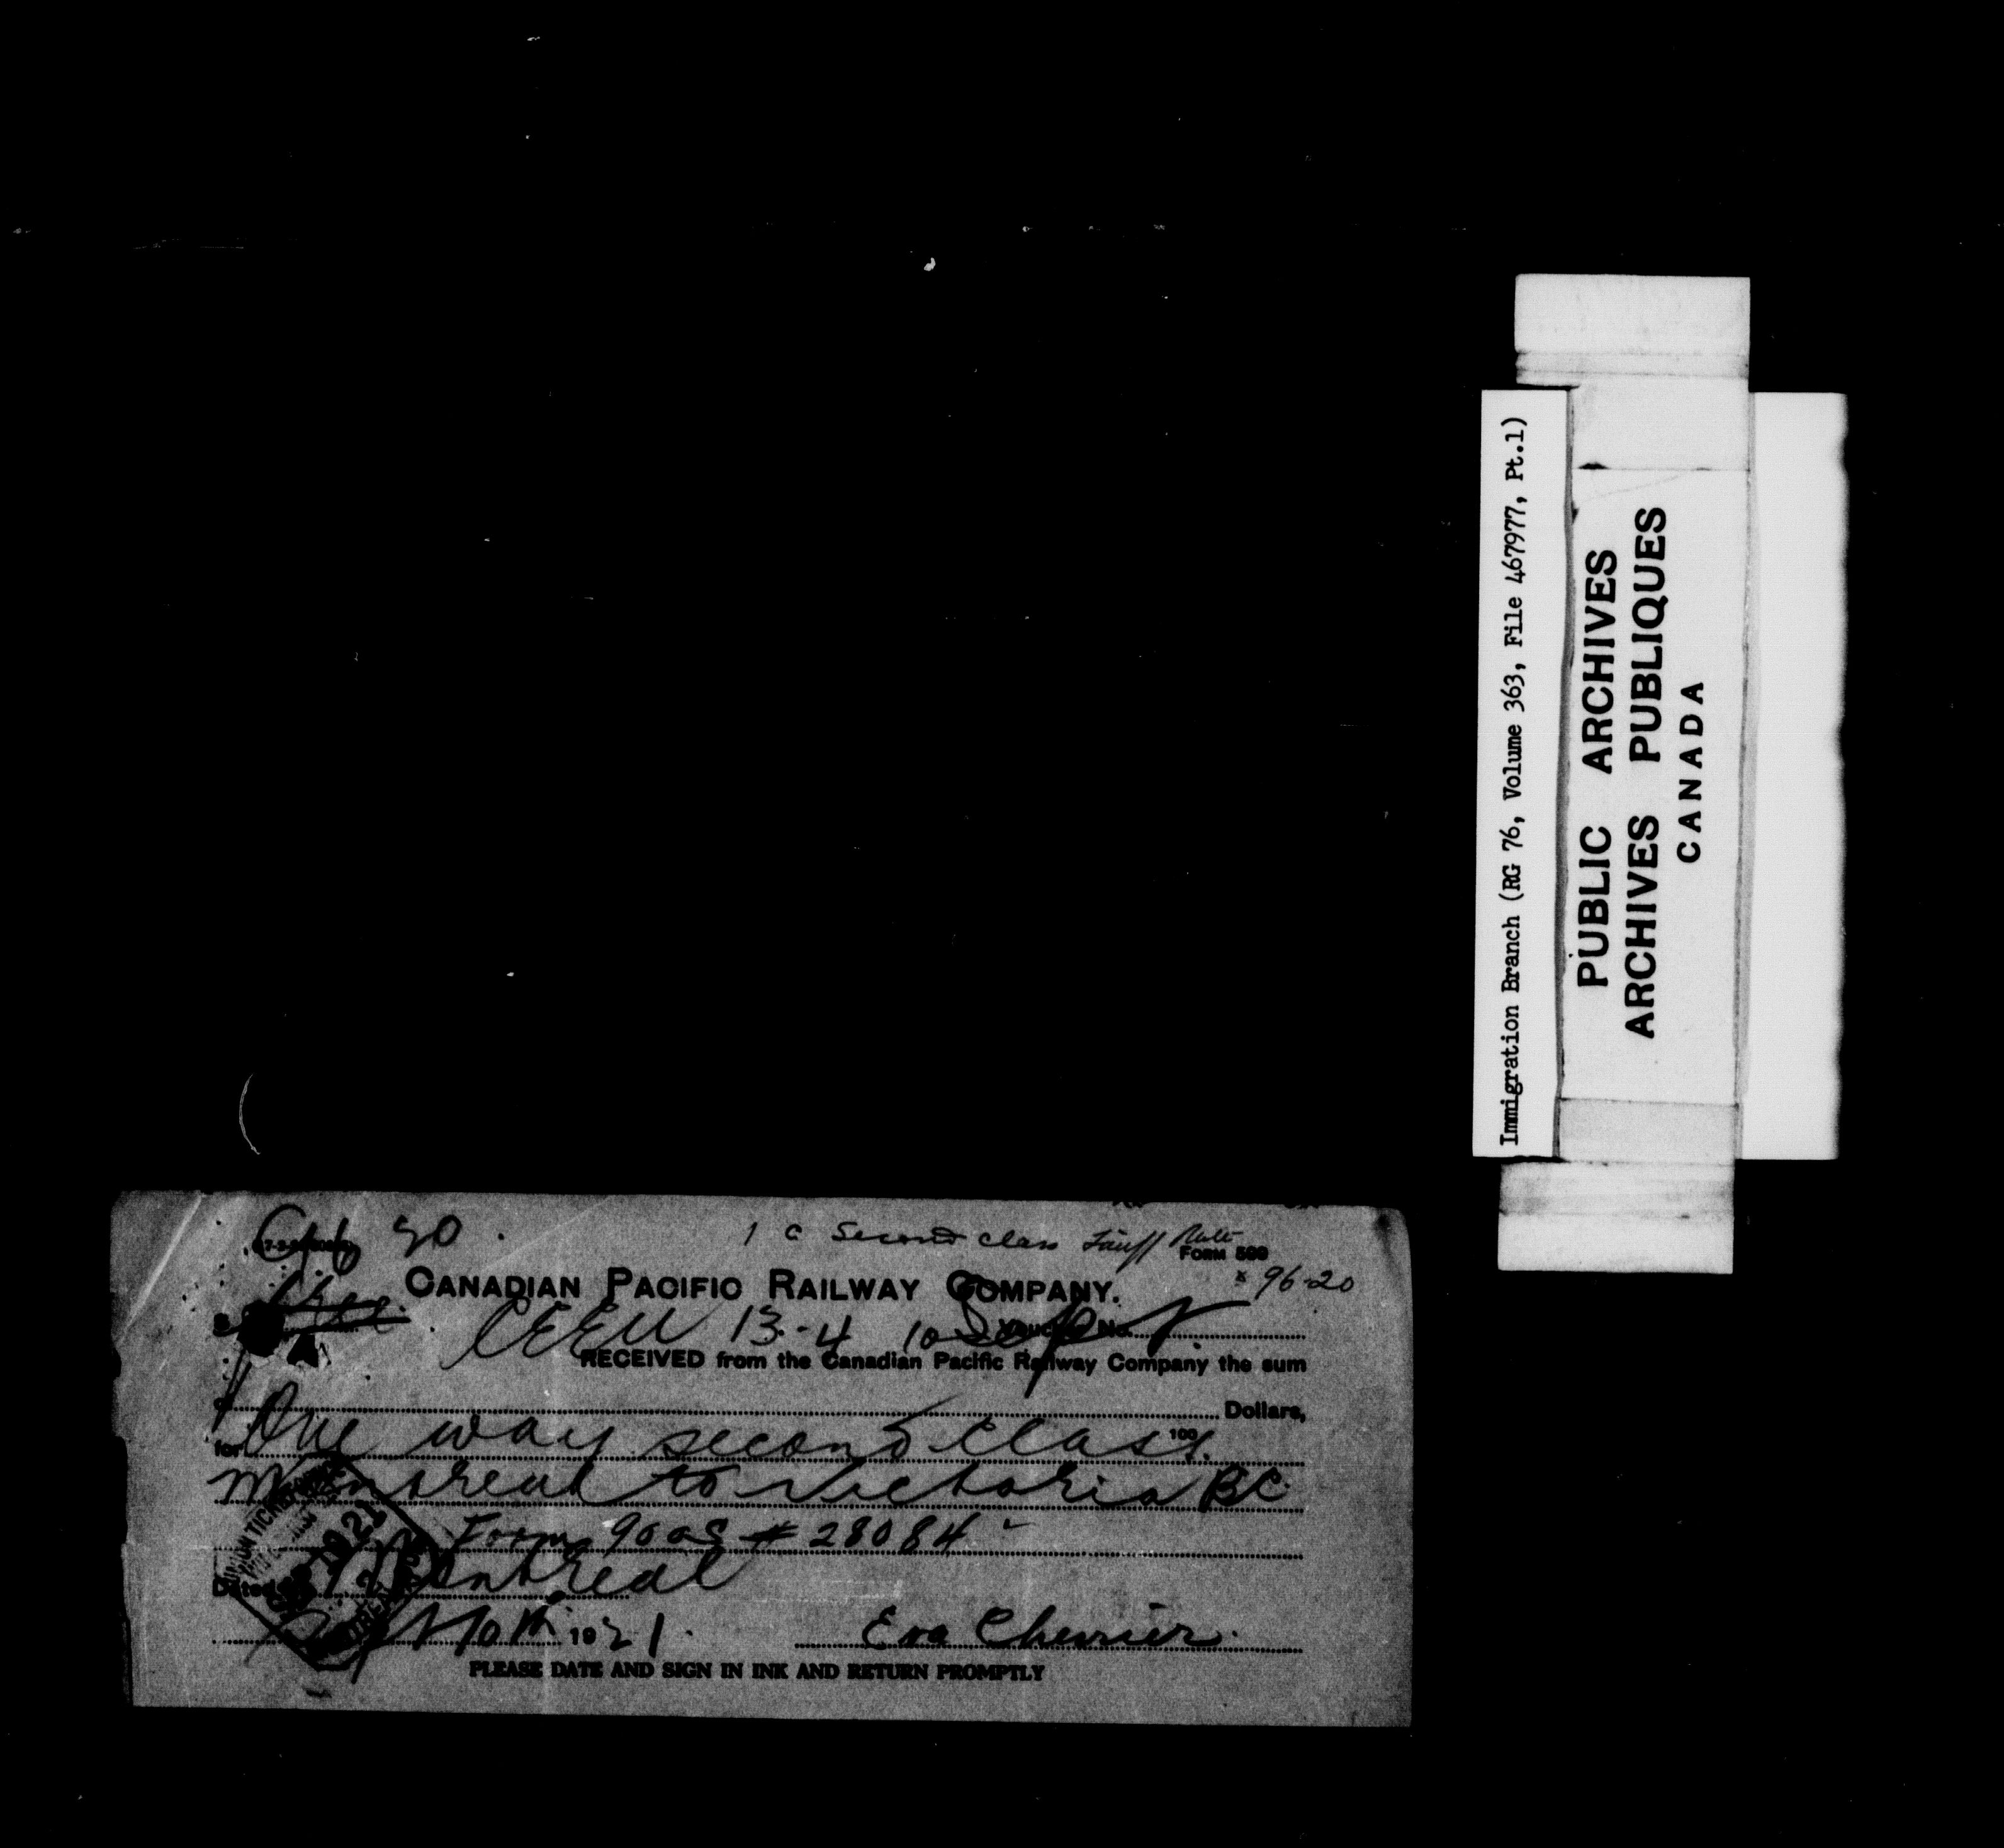 1 c Second class Tariff Rate
FORM 500
CANADIAN PACIFIC RAILWAY COMPANY.
96-20
13-4 10 Sept
Voucher No.
RECEIVED from the Canadian Pacific Railway Company the sum
Dollars,
100
for One way second class.
Montreal to Victoria BC.
Form 90 28084
Dated Montreal
Sept 10th 1921.
Eva Chevrier.
PLEASE DATE AND SIGN IN INK AND RETURN PROMPTLY
Immigration Branch (RG 76, Volume 363, File 467977, Pt.1)
PUBLIC ARCHIVES
ARCHIVES PUBLIQUES
CANADA